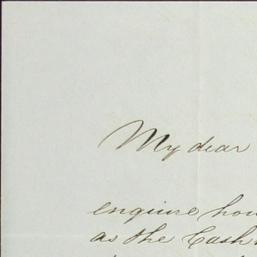 My dear
enquire how
as the Cash